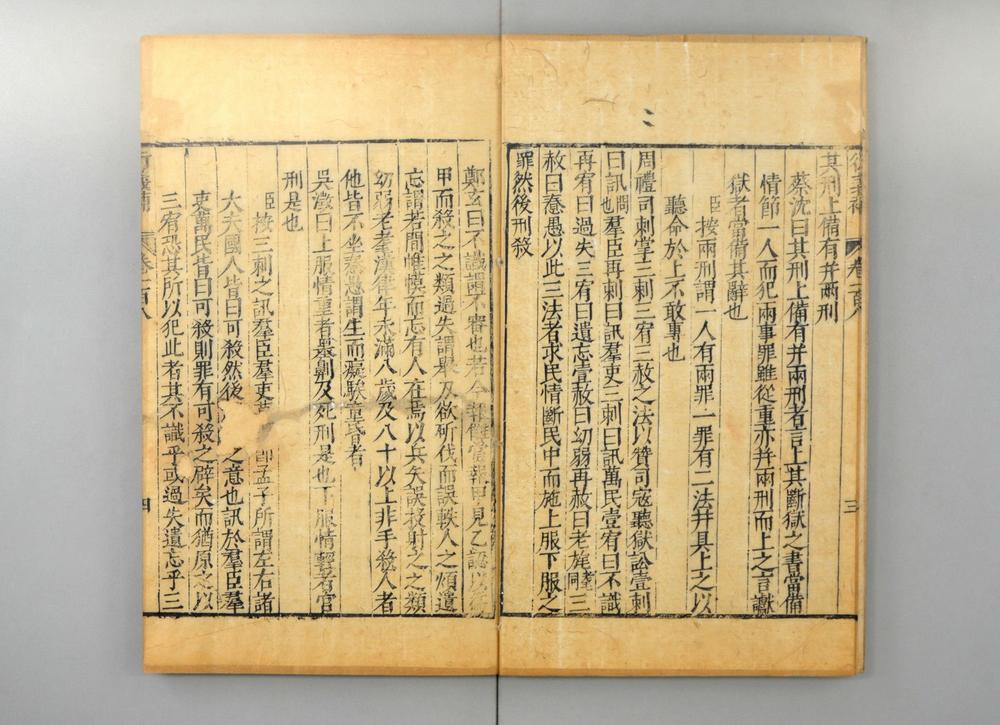 其刑上備有并兩刑
蔡沈曰其刑上備有并兩刑者言上其斷獄之書當備
情節一人而犯兩事罪雖從重亦并兩刑而上之言讞
獄者當備其辭也
臣按兩刑謂一人有兩罪一罪有二法并具上之以
聽命於上不敢專也
周禮司刺掌三刺三宥三赦之法以贊司寇聽獄訟壹刺
曰訊問也羣臣再刺曰訊羣吏三刺曰訊萬民壹宥曰不識
再宥曰過失三宥曰遺忘壹赦曰幼弱再赦曰老旄三
赦曰惷愚以此三法者求民情斷民中而施上服下服之
罪然後刑殺
三
鄭玄曰不識謂不審也若今報讎當報甲見乙誠以爲
甲而殺之之類過失謂舉刃欲斫伐而誤軼人之類遺
忘謂若間帷幙而忘有人在焉以兵矢誤投射之之類
幼弱老耄漢律年未滿八歲及八十以上非手殺人者
他皆不坐惷愚謂生而癡騃童昏者
吳澂曰上服情重者墨劓及死刑是也下服情輕者宮
刑是也
臣按三刺之訊羣臣羣吏 卽孟子所謂左右諸
大夫國人皆曰可殺然後 之意也訊於羣臣羣
吏萬民皆曰可殺則罪有可殺之辟矣而猶原之以
三宥恐其所以犯此者其不識乎或過失遺忘乎三
卷一百八
四